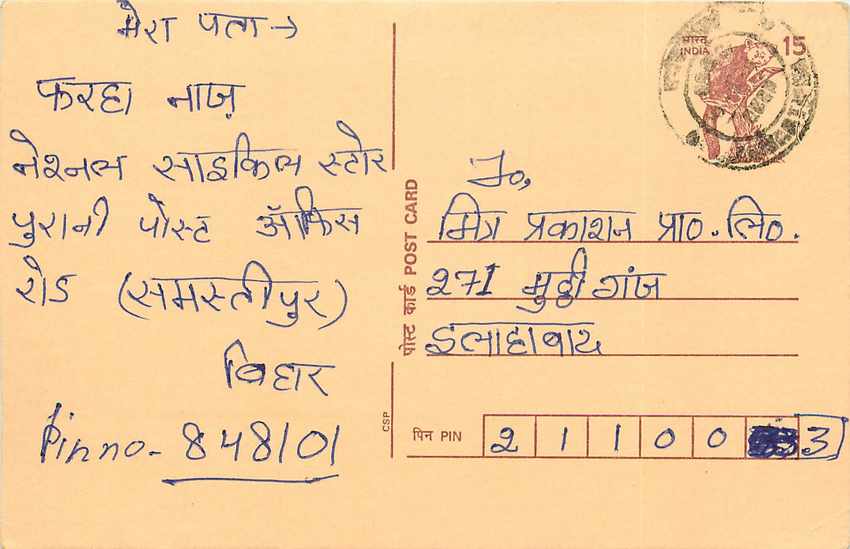 मेरा पता →
फरहा नाज़
नेश्नल साइकिल स्टोर
पुरानी पोस्ट ऑफिस
रोड (समस्तीपुर)
बिहार
Pin no - 848101
भारत
INDIA
15
पोस्ट कार्ड POST CARD
CSP
To,
मित्र प्रकाशन प्रा०. लि०.
271 मुट्ठी गंज
इलाहाबाद
पिन PIN 2 1 1 0 0 3